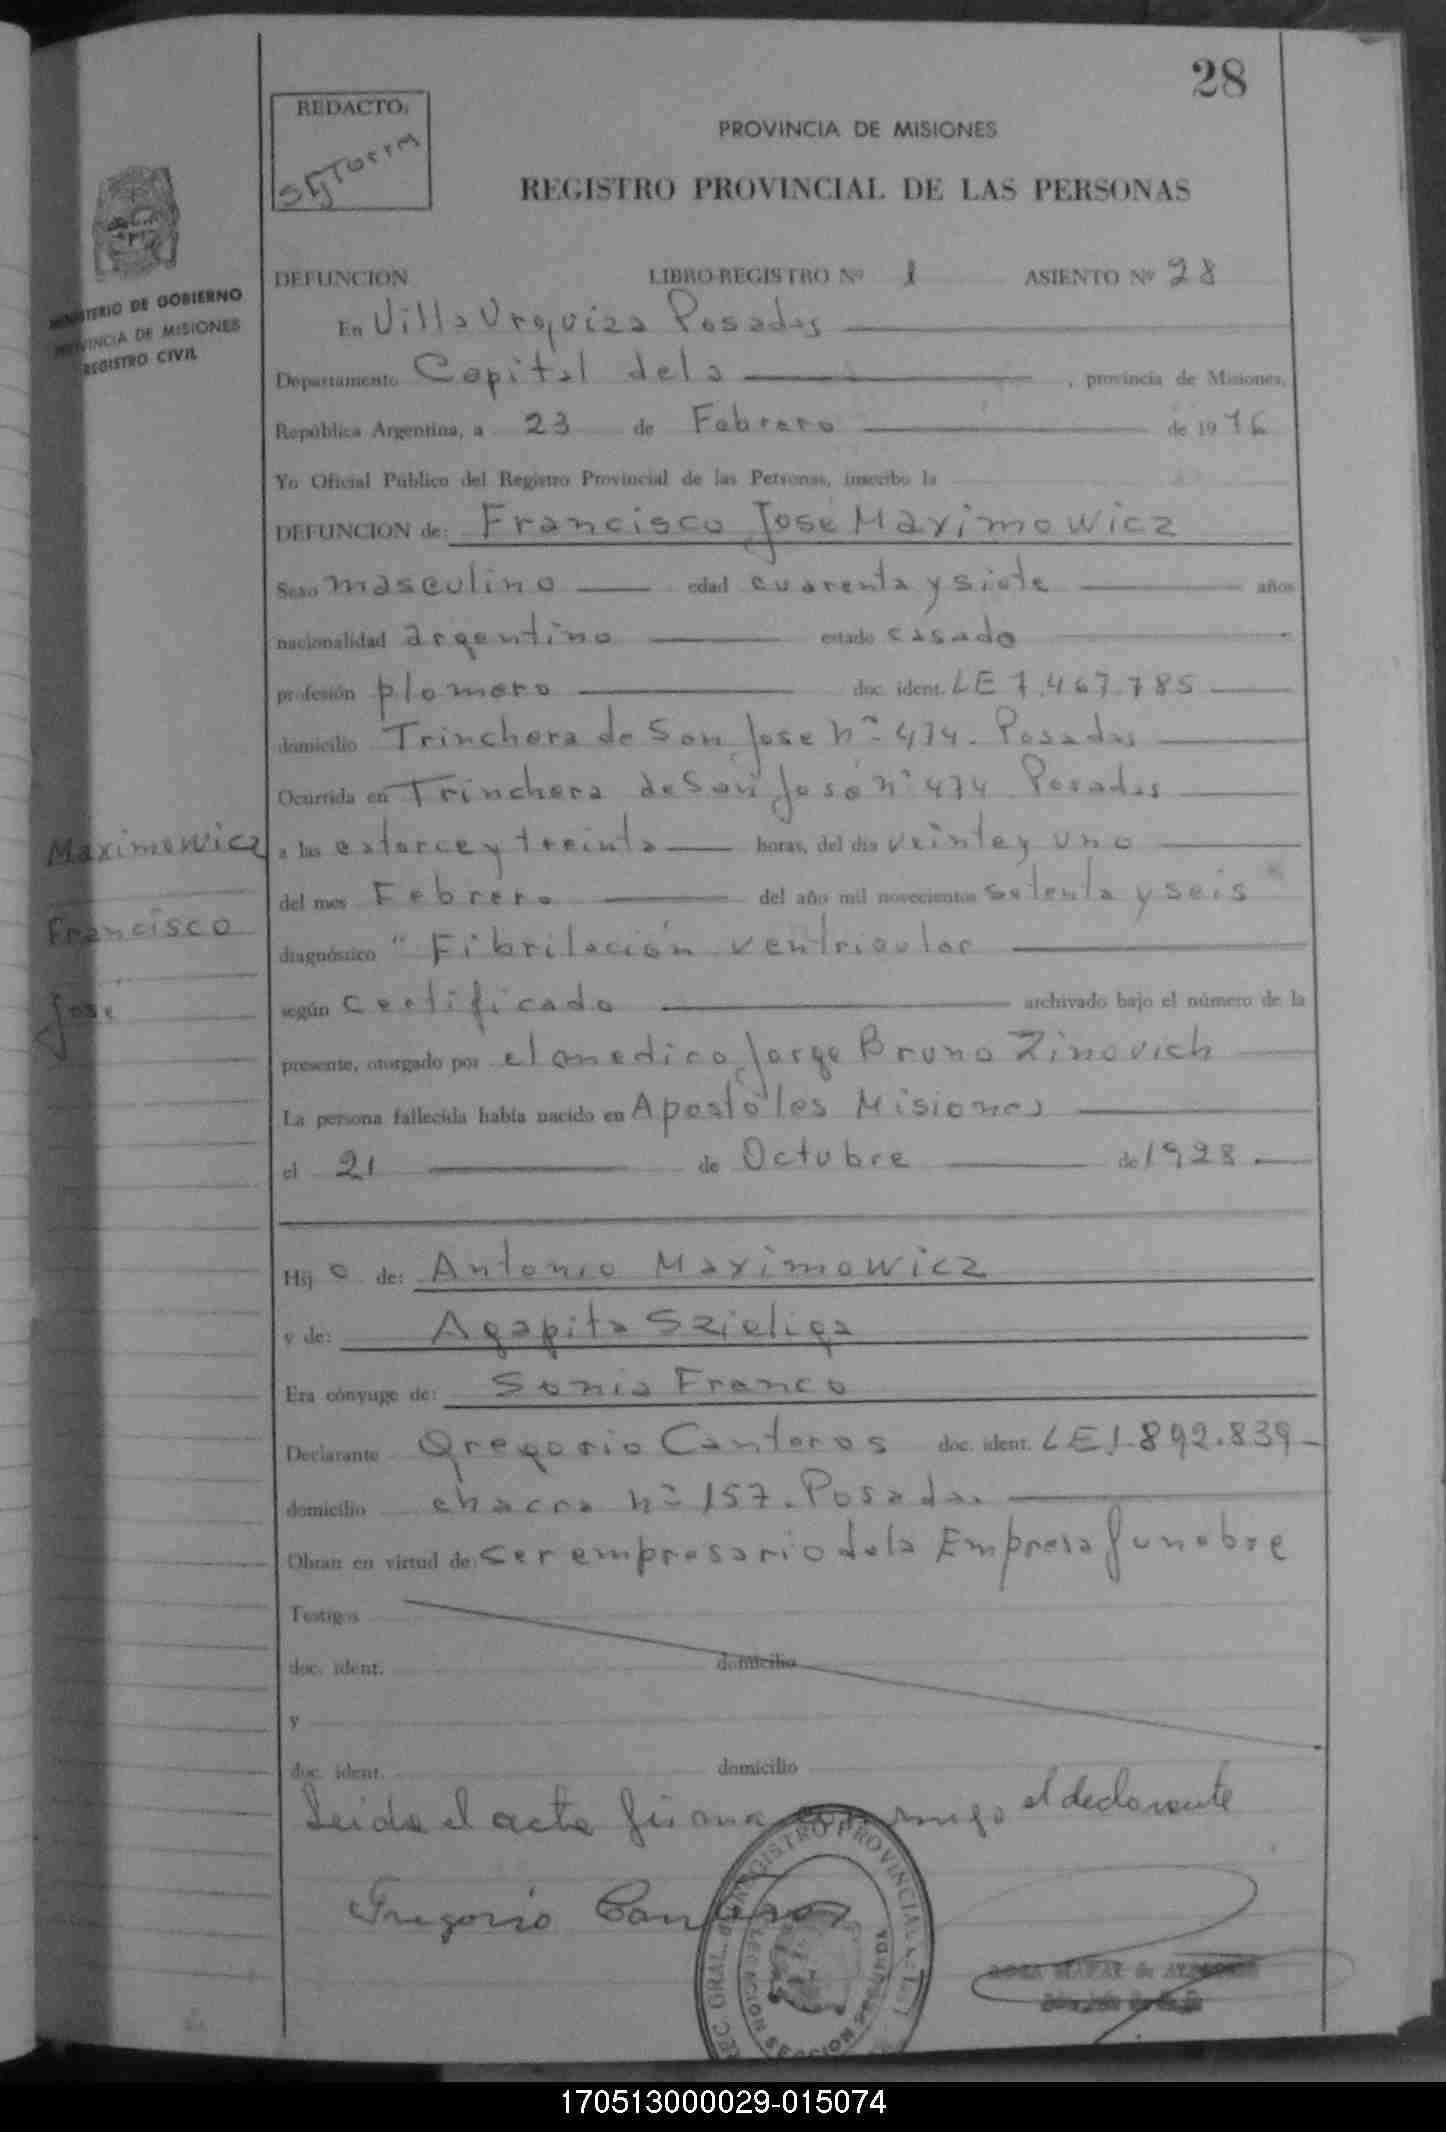 28
REDACTO:
PROVINCIA DE MISIONES
REGISTRO PROVINCIAL DE LAS PERSONAS
MINISTERIO DE GOBIERNO
PROVINCIA DE MISIONES
REGISTRO CIVIL
DEFUNCION LIBRO-REGISTRO Nº 1 ASIENTO Nº 28
En Villa Urquiza Posadas
Departamento Capital dela , provincia de Misiones,
República Argentina, a 23 de Febrero de 1976
Yo Oficial Público del Registro Provincial de las Personas, inscribo la
DEFUNCION de: Francisco José Maximowicz
Sexo masculino edad cuarenta y siete años
nacionalidad argentino estado casado
profesión plomero doc. ident. LE 7.467.785
domicilio Trinchera de San Jose nº 474. Posadas
Ocurrida en Trinchera de San José nº 474 Posadas
Maximowicz
a las catorce y treinta horas, del día veinte y uno
del mes Febrero del año mil novecientos setenta y seis
Francisco
diagnóstico "Fibrilación ventricular
José
según certificado archivado bajo el número de la
presente, otorgado por el medico Jorge Bruno Zinovich
La persona fallecida había nacido en Apostóles Misiones
el 21 de Octubre de 1928
Hij o de: Antonio Maximowicz
y de: Agapita Szieliga
Era cónyuge de: Sonia Franco
Declarante Gregorio Canteros doc. ident. LE 1.892.839
domicilio chacra nº 157. Posadas
Obran en virtud de: ser empresario dela Empresa funebre
Testigos
doc. ident. domicilio
y
doc. ident. domicilio
Leida el acta firma conmigo el declarante
Gregorio Canteros
REGISTRO PROVINCIAL
170513000029-015074